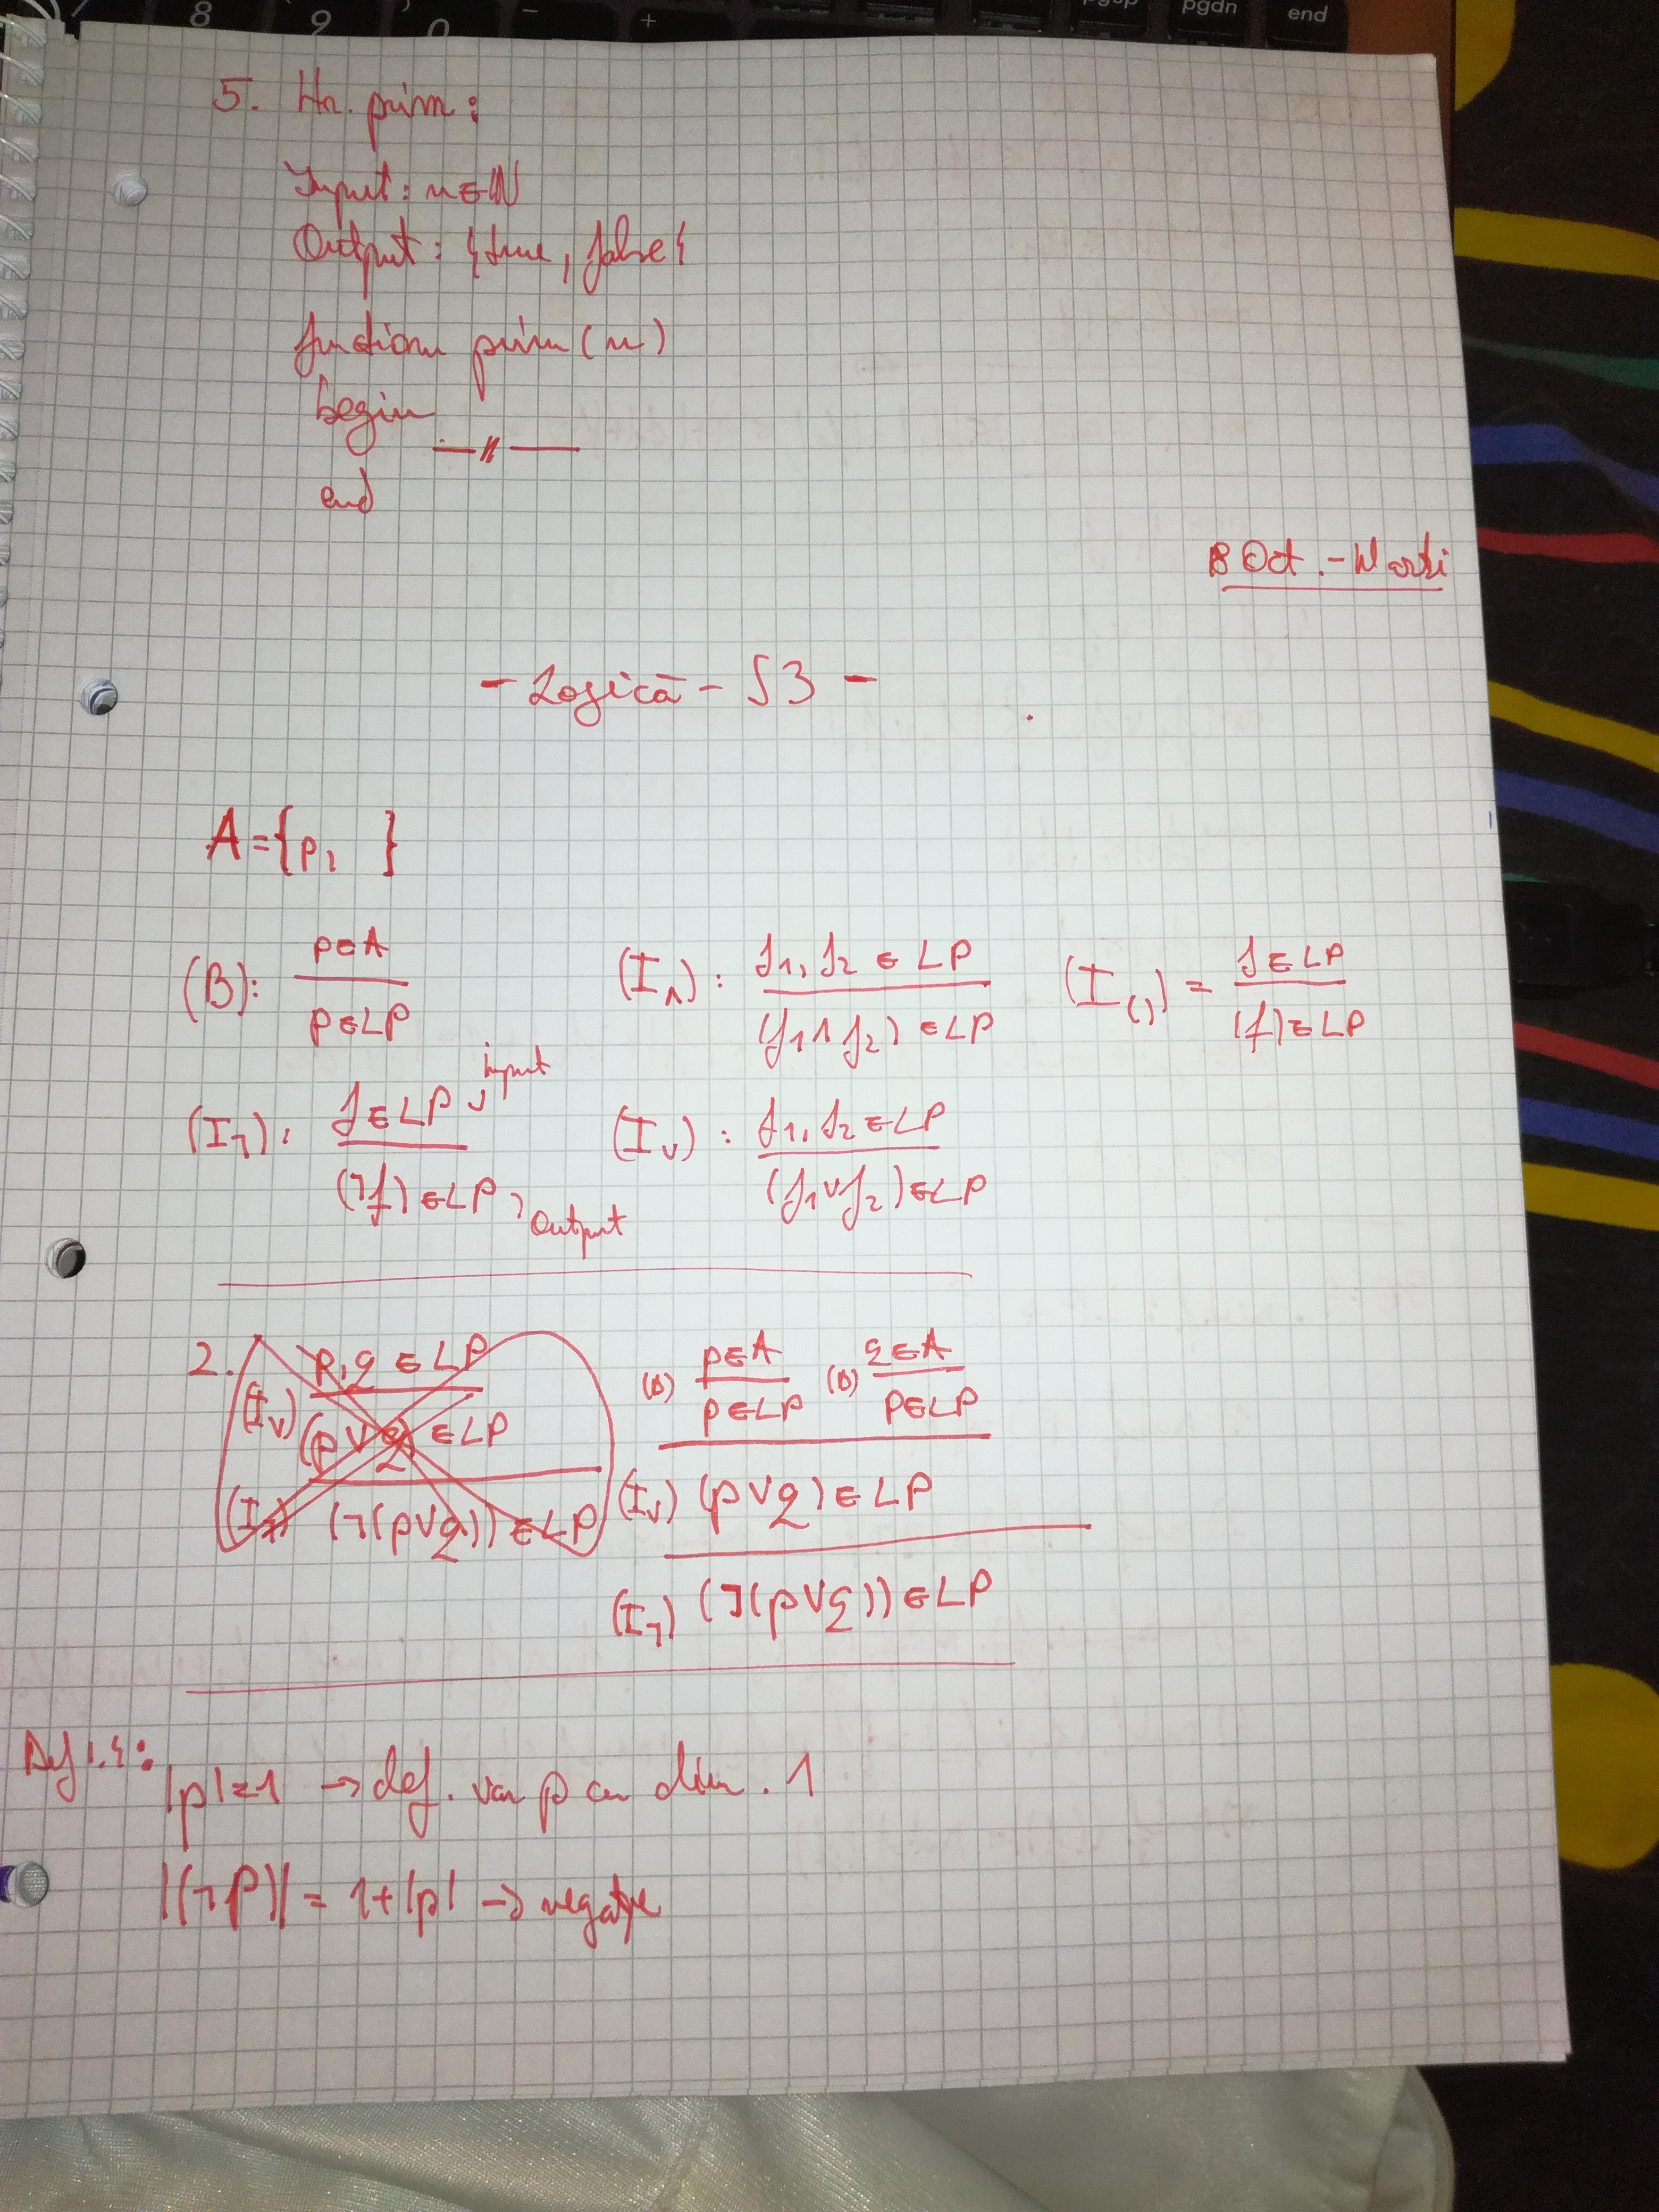 8 9 0 - +
pgup pgdn end
5. Nr. prim:
Input: n∈ℕ
Output: {true, false}
function prim(n)
begin
—"—
end
8 Oct. - Marți
- Logică - S3 -
A={p, }
(B): p∈A / p∈LP
(I∧): f1, f2 ∈ LP / (f1∧f2) ∈LP
(I()) = f∈LP / (f)∈LP
(I¬): f∈LP / (¬f)∈LP
input
Output
(I∨): f1, f2 ∈LP / (f1∨f2)∈LP
2. p,q ∈LP
(I∨) (p∨q) ∈LP
(I¬) (¬(p∨q)) ∈LP
(B) p∈A / p∈LP (B) q∈A / p∈LP
(I∨) (p∨q)∈LP
(I¬) (¬(p∨q))∈LP
Def 1.4:
|p|=1 → def. var p cu dim. 1
|(¬p)| = 1+|p| → negație